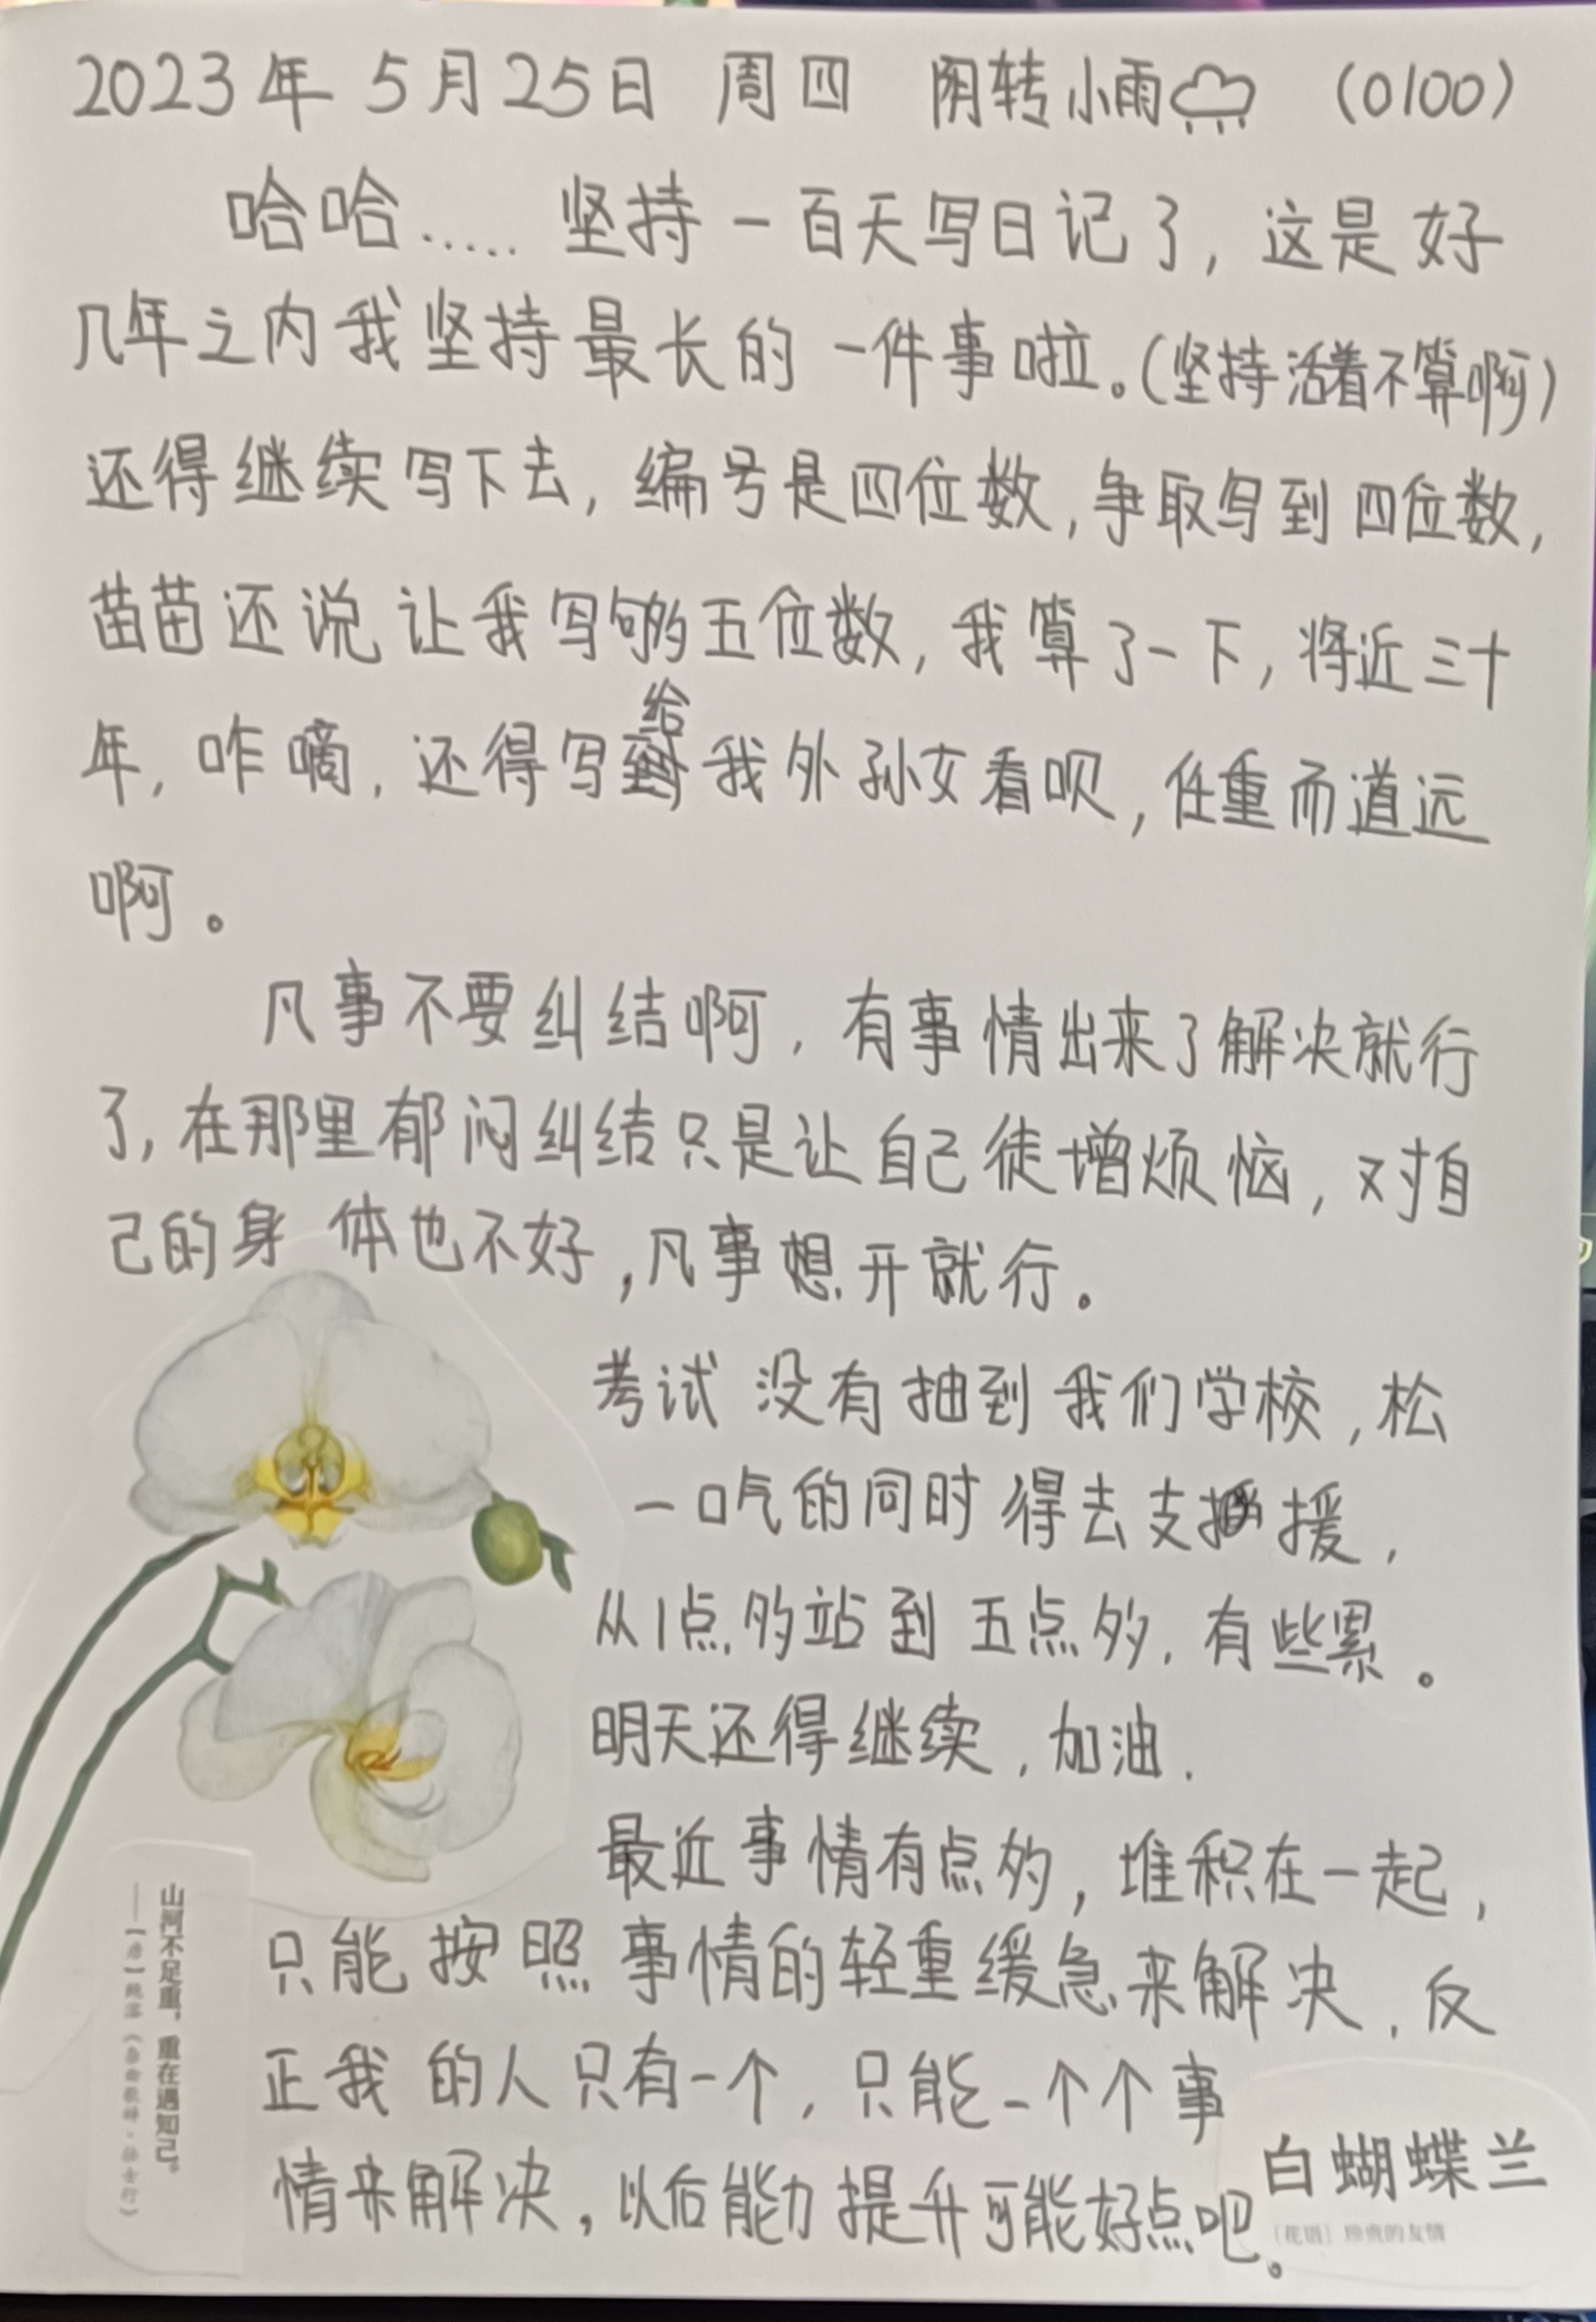 2023年 5月25日 周四 阴转小雨 (0100)
哈哈..... 坚持一百天写日记了,这是好
几年之内我坚持最长的一件事啦。(坚持活着不算啊)
还得继续写下去,编号是四位数,争取写到四位数,
苗苗还说让我写够五位数,我算了一下,将近三十
年,咋嘀,还得写给我外孙女看呗,任重而道远
啊。
凡事不要纠结啊,有事情出来了解决就行
了,在那里郁闷纠结只是让自己徒增烦恼,对自
己的身体也不好,凡事想开就行。
考试没有抽到我们学校,松
一口气的同时得去支援,
从1点多站到五点多,有些累。
明天还得继续,加油.
最近事情有点多,堆积在一起,
只能按照事情的轻重缓急来解决,反
正我的人只有一个,只能一个个事
情来解决,以后能力提升可能好点吧。
山河不足重,重在遇知己。
白蝴蝶兰
[花语] 珍贵的友情